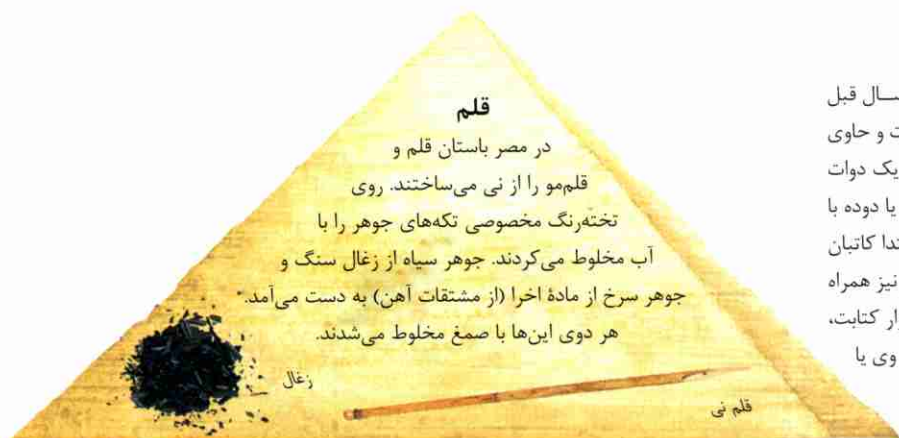 قلم
در مصر باستان قلم و
قلم‌مو را از نی می‌ساختند. روی
تخته‌رنگ مخصوصی تکه‌های جوهر را با
آب مخلوط می‌کردند. جوهر سیاه از زغال سنگ و
جوهر سرخ از مادهٔ اخرا (از مشتقات آهن) به دست می‌آمد.
هر دوی این‌ها با صمغ مخلوط می‌شدند.
زغال
قلم نی
سال قبل
و حاوی
یک دوات
یا دوده با
کاتبان
نیز همراه
کتابت،
وی یا